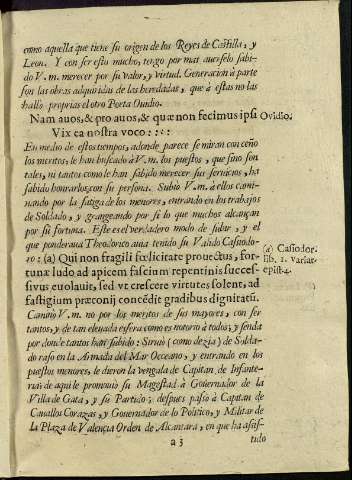 como aquella que tiene su origen de los Reyes de Castilla, y
Leon. Y con ser esto mucho, tengo por mas auerselo sabi-
do V.m. merecer por su valor, y virtud. Generacion à parte
son las obras adquiridas de las heredadas, que à estas no las
hallò proprias el otro Poeta Ouidio.
Nam auos, & pro auos, & quæ non fecimus ipsi
Ouidio.
Vix ea nostra voco::::
En medio de estos tiempos, adonde parece se miran con ceño
los meritos, le han buscado à V.m. los puestos, que sino son
tales, ni tantos como le han sabido merecer sus seruicios, ha
sabido honrarlos con su persona. Subiò V.m. à ellos cami-
nando por la fatiga de los menores, entrando en los trabajos
de Soldado, y grangeando por si lo que muchos alcançan
por su fortuna. Este es el verdadero modo de subir, y el
que ponderaua Theodorico auia tenido su Valido Cassiodo-
ro: (a) Qui non fragili fœlicitate prouectus, for-
(a) Cassiodor.
lib. 1. Variar.
epist. 4.
tunæ ludo ad apicem fascium repentinis succes-
sivus euolauit, sed vt crescere virtutes solent, ad
fastigium præconij concêdit gradibus dignitatũ.
Caminò V.m. no por los meritos de sus mayores, con ser
tantos, y de tan eleuada esfera como es notorio à todos, y senda
por donde tantos han subido: Siruiò (como dezia) de Solda-
do raso en la Armada del Mar Oceano, y entrando en los
puestos menores, le dieron la vengala de Capitan de Infante-
ria: de aqui le promouiò su Magestad à Gouernador de la
Villa de Gata, y su Partido; despues passò à Capitan de
Cauallos Corazas, y Gouernador de lo Politico, y Militar de
la Plaza de Valençia Orden de Alcantara, en que ha assis-
a 3
tido